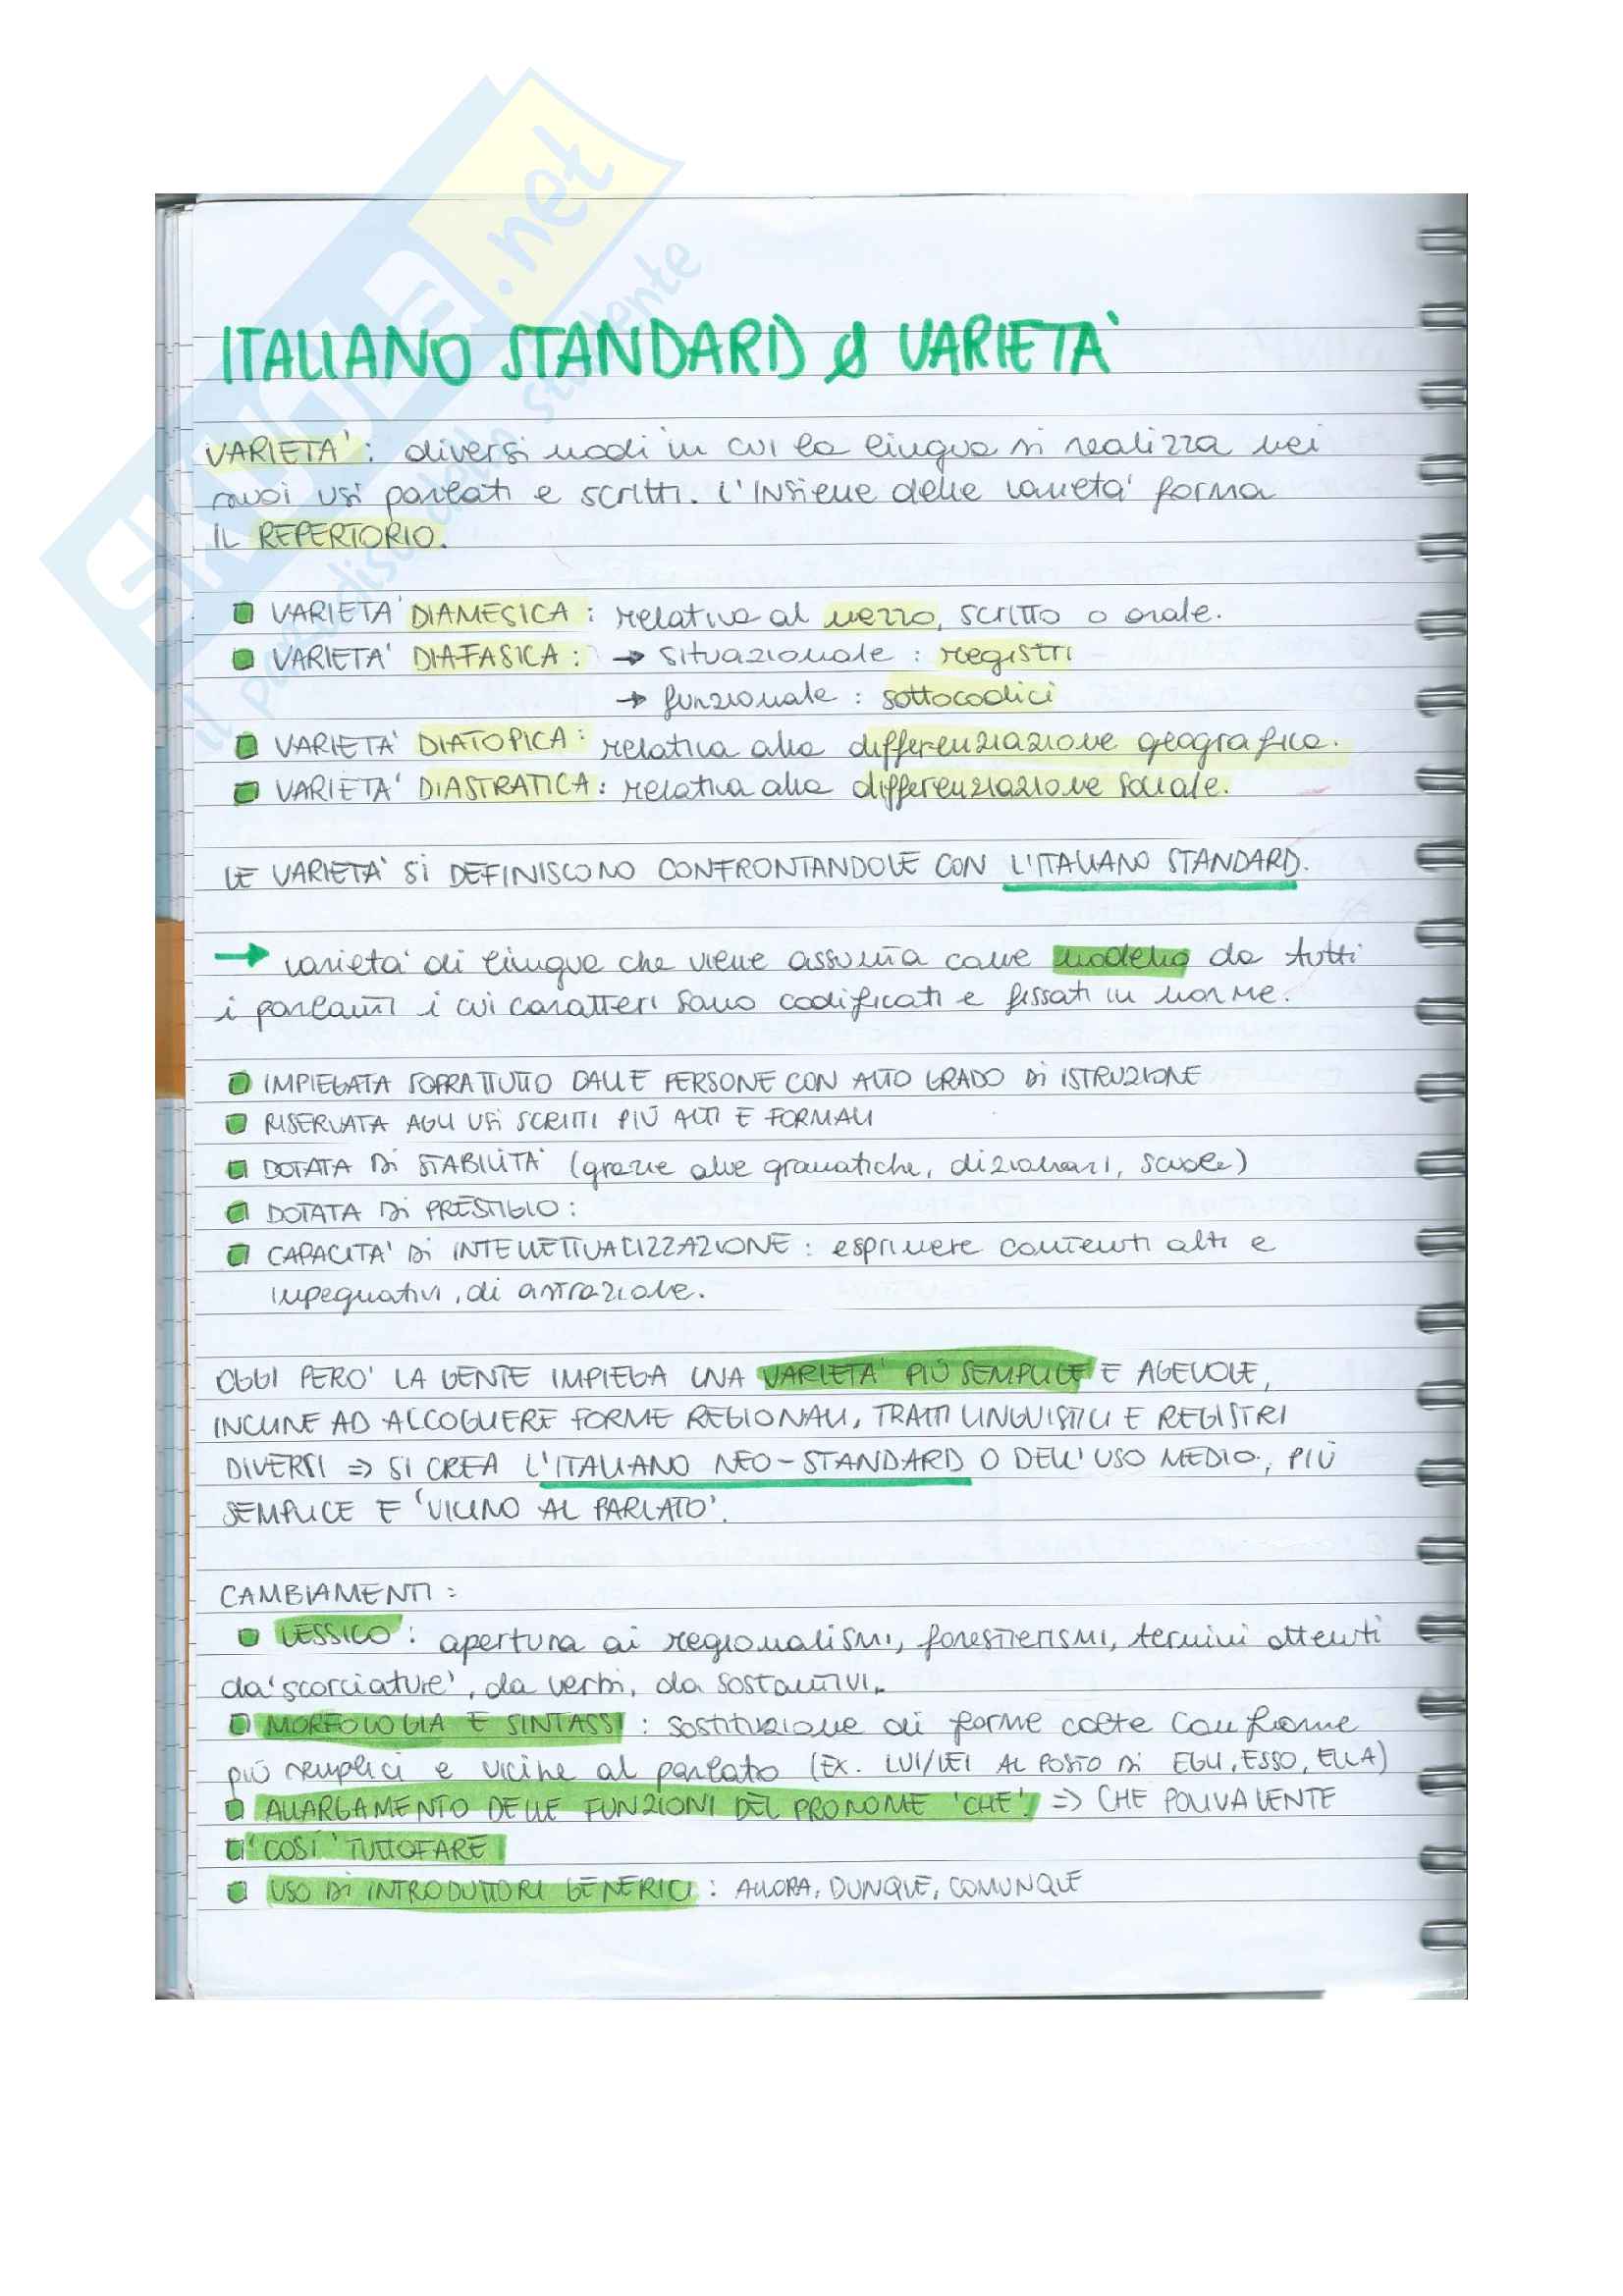 SKUOLA.net
il paradiso dello studente
ITALIANO STANDARD & VARIETÀ
VARIETA': diversi modi in cui la lingua si realizza nei
suoi usi parlati e scritti. L'insieme delle varietà forma
IL REPERTORIO.
VARIETA' DIAMESICA: relativa al mezzo, scritto o orale.
VARIETA' DIAFASICA: → situazionale: registri
→ funzionale: sottocodici
VARIETA' DIATOPICA: relativa alla differenziazione geografica.
VARIETA' DIASTRATICA: relativa alla differenziazione sociale.
LE VARIETA' SI DEFINISCONO CONFRONTANDOLE CON L'ITALIANO STANDARD.
→ varietà di lingua che viene assunta come modello da tutti
i parlanti i cui caratteri sono codificati e fissati in norme.
IMPIEGATA SOPRATTUTTO DALLE PERSONE CON ALTO GRADO DI ISTRUZIONE
RISERVATA AGLI USI SCRITTI PIÙ ALTI E FORMALI
DOTATA DI STABILITA' (grazie alle gramatiche, dizionari, scuole)
DOTATA DI PRESTIGIO:
CAPACITA' DI INTELLETTUALIZZAZIONE: esprimere contenuti alti e
impegnativi, di astrazione.
OGGI PERO' LA GENTE IMPIEGA UNA VARIETA' PIÙ SEMPLICE E AGEVOLE,
INCLINE AD ACCOGLIERE FORME REGIONALI, TRATTI LINGUISTICI E REGISTRI
DIVERSI => SI CREA L'ITALIANO NEO-STANDARD O DELL'USO MEDIO, PIÙ
SEMPLICE E 'VICINO AL PARLATO'.
CAMBIAMENTI:
LESSICO: apertura ai regionalismi, forestierismi, termini ottenuti
da 'scorciature', da verbi, da sostantivi.
MORFOLOGIA E SINTASSI: sostituzione di forme colte con forme
più semplici e vicine al parlato (EX. LUI/LEI AL POSTO DI EGLI, ESSO, ELLA)
ALLARGAMENTO DELLE FUNZIONI DEL PRONOME 'CHE' => CHE POLIVALENTE
'COSÌ' TUTTOFARE
USO DI INTRODUTTORI GENERICI: ALLORA, DUNQUE, COMUNQUE